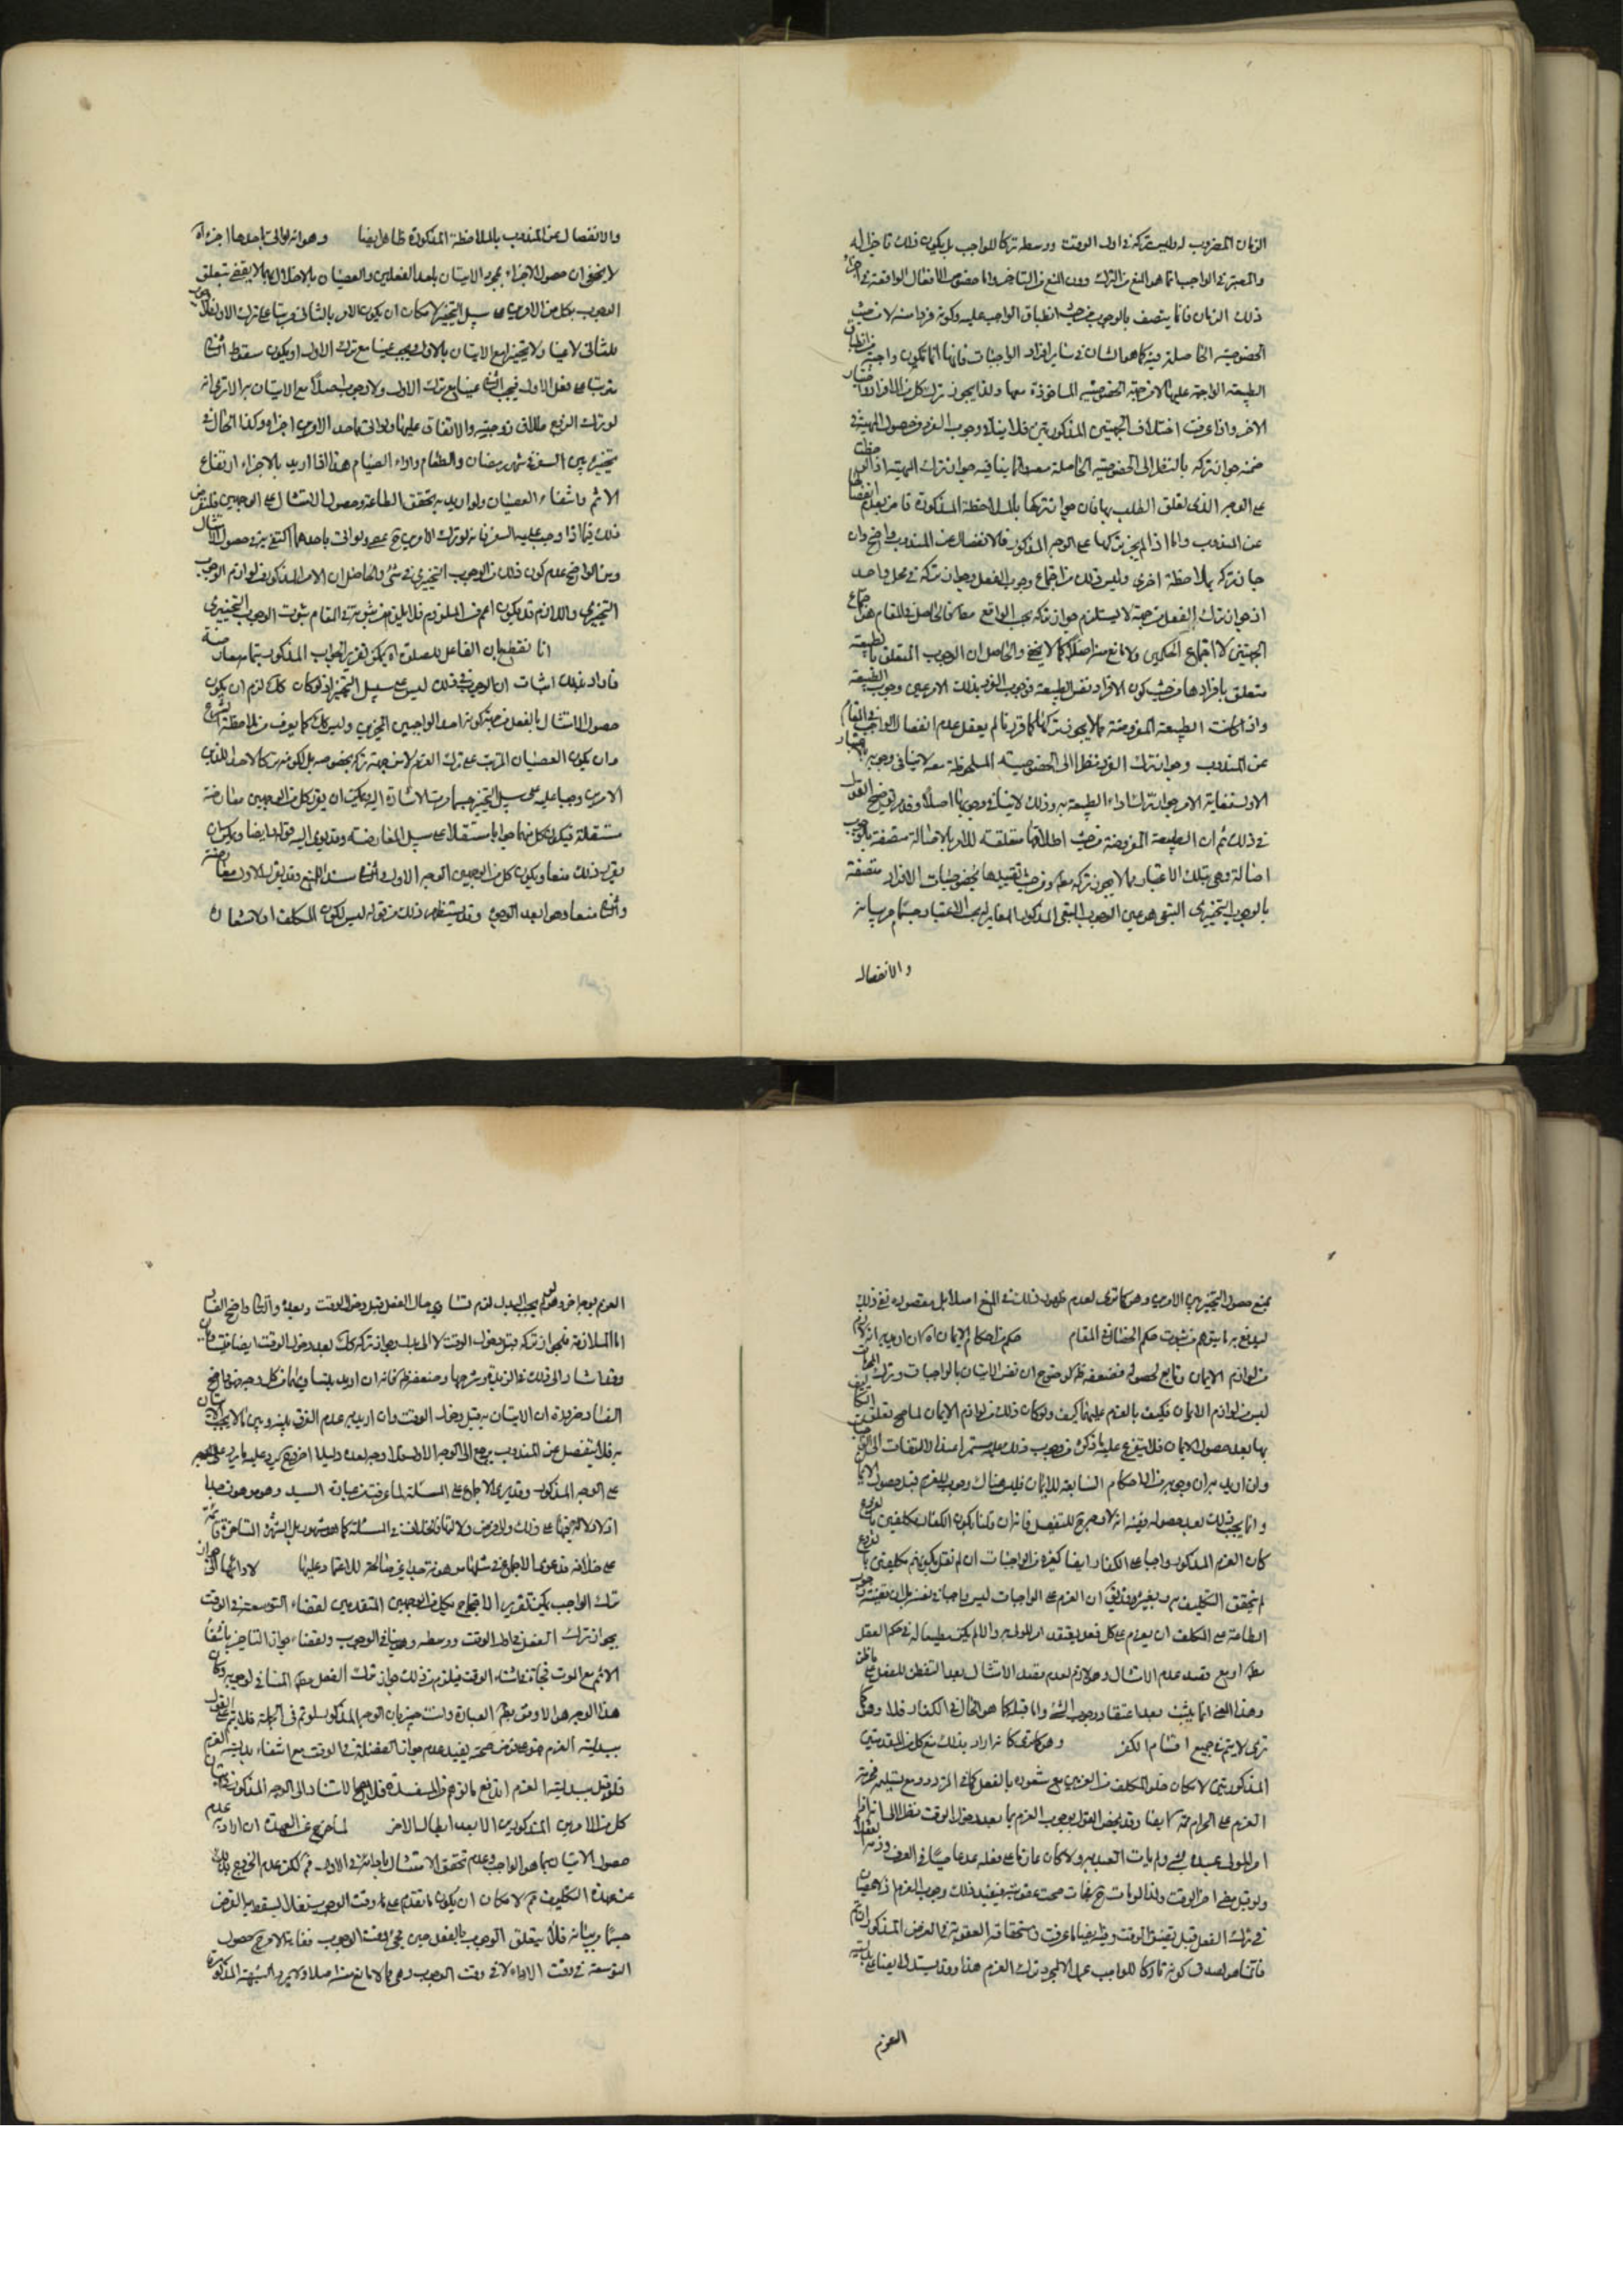 الزمان المضروب له وليس تركه في اول الوقت ووسطه تركا للواجب بل يكون ذلك تاخيرا له
والمعتبر في الواجب انما هو المنع من الترك دون المنع من التاخير واما خصوص الافعال الواقعة في اجزاء
ذلك الزمان فانما يتصف بالوجوب من حيث انطباق الواجب عليه وكونه فردا منه لا من حيث
الخصوصية الحاصلة فيه كما هو الشان في سائر افراد الواجبات فانها انما تكون واجبة من انطباق
الطبيعة الواجبة عليها لا من جهة الخصوصية الماخوذة معها ولذا يجوز ترك كل من الافراد واختيار
الاخر واذا عرفت اختلاف الجهتين المذكورتين فلا ينافي وجوب الفرد من حصول الطبيعة في
ضمنه جواز تركه بالنظر الى الخصوصية الحاصلة معه وانما ينافيه جواز ترك الطبيعة
على الوجه الذي تعلق الطلب بها فان جواز تركها بالملاحظة المذكورة قاض بعدم انفصالها
عن المندوب واما اذا لم يجز تركها على الوجه المذكور فالانفصال عن المندوب واضح وان
جاز تركه بملاحظة اخرى وليس ذلك من اجتماع وجوب الفعل وجواز تركه في محل واحد
اذ جواز ترك الفعل من جهة لا يستلزم جواز تركه بحسب الواقع فالحاصل في المقام هو اجتماع
الجهتين لا اجتماع الحكمين ولا مانع منه اصلا كما لا يخفى والحاصل ان الوجوب المتعلق بالطبيعة
متعلق بافرادها من حيث كون الافراد نفس الطبيعة فوجوب الفرد بذلك الاعتبار عين وجوب الطبيعة
واذا كانت الطبيعة المفروضة مما لا يجوز تركها كما قررنا لم يعقل عدم انفصال الواجب في المقام
عن المندوب وجواز ترك الفرد نظرا الى الخصوصية الملحوظة معه لا ينافي وجوبه بالاعتبار
الاول فغاية الامر جواز ترك اداء الطبيعة به وذلك لا ينافي وجوبها اصلا وقد مر توضيح القول
في ذلك ثم ان الطبيعة المفروضة من حيث اطلاقها متعلقة للامر بالاصالة متصفة بالوجوب
اصالة وهي بتلك الاعتبار مما لا يجوز تركه مطلقا ومن حيث تقييدها بخصوصيات الافراد متصفة
بالوجوب التخييري التبعي هو عين الوجوب العيني المذكور المغاير له بحسب الاعتبار حسبما مر بيانه
والانفصال
والانفصال عن المندوب بالملاحظة المذكورة ظاهر ايضا وهو انه لو اتى باحدهما اجزأه
لا يخفى ان حصول الاجزاء بمجرد الاتيان باحد الفعلين والعصيان بالاخلال بهما لا يقضي بتعلق
الوجوب بكل من الامرين على سبيل التخيير لامكان ان يكون الامر بالثاني مرتبا على ترك الاول
للثاني لا عينا ولا تخييرا مع الاتيان بالاول ويجب عينا مع ترك الاول او يكون سقوط الثاني
مرتبا على فعل الاول فيجب الثاني عينا مع ترك الاول ولا وجوب اصلا مع الاتيان به الا ترى انه
لو ترك الزوج طلاق زوجته والانفاق عليها ولو اتى باحد الامرين اجزأه وكذا الحال في
تخييره بين السفر في شهر رمضان والمقام واداء الصيام هذا اذا اريد بالاجزاء ارتفاع
الاثم وانتفاء العصيان ولو اريد به تحقق الطاعة وحصول الامتثال على الوجهين فلنفرض
ذلك فيما اذا وجب عليه السفر فانه لو ترك الامرين ح عصى ولو اتى باحدهما اكتفى به في حصول الامتثال
ومن الواضح عدم كون ذلك من الوجوب التخييري في شئ والحاصل ان الامر المذكور من لوازم الوجوب
التخييري واللازم قد يكون اعم من الملزوم فلا يلزم من ثبوته في المقام ثبوت الوجوب التخييري
انا نقطع بان الفاعل للصلوة اه يمكن تقرير الجواب المذكور بتمامه معارضة
فاراد بذلك اثبات ان الوجوب في ذلك ليس على سبيل التخيير اذ لو كان كك لزم ان يكون
حصول الامتثال بالفعل من جهة كونه احد الواجبين التخييريين وليس كك كما يعرف من ملاحظة الشرع
وان يكون العصيان المترتب على ترك العزم لا من جهة تركه بخصوصه بل لكونه تركا لاحد اللذين
الامرين وجبا عليه على سبيل التخيير حسبما مرت الاشارة اليه ويمكن ان يقرر كل من الوجهين معارضة
مستقلة فيكون كل منهما جوابا مستقلا على سبيل المعارضة وقد يومي اليه قوله ايضا ويمكن ان
يقرر ذلك منعا ويكون كل من الوجهين الوجه الاول والثاني سند المنع وقد يقرر الاول معارضة
والثاني منعا وهو ابعد الوجوه وقد يستظهر ذلك من قوله ليس لكون المكلف
يمنع حصول التخيير بين الامرين وهو كما ترى لعدم ظهور ذلك في المنع اصلا بل مقصوده نفي ذلك
ليدفع به ما يتوهم من ثبوت حكم الخصال في المقام حكم من احكام الايمان اه ان اريد به انه
من لوازم الايمان وتابع لحصوله فضعفه ظ لوضوح ان نفس الاتيان بالواجبات وترك المحرمات
ليس من لوازم الايمان فكيف بالعزم عليهما كيف ولو كان ذلك من لوازم الايمان لما صح تعلق التكليف
بها بعد حصول الايمان فلا يتفرع عليه ما ذكره من وجوب ذلك عليه مستمرا عند الالتفات الى
وان اريد به ان وجوبه من الاحكام التابعة للايمان فليس هناك وجوب للعزم قبل حصول الايمان
وانما يجب ذلك بعد حصوله ففيه انه لا وجه ح للتفصيل فانه ان قلنا بكون الكفار مكلفين بالفروع
كان العزم المذكور واجبا على الكفار ايضا كغيره من الواجبات وان لم نقل بكونهم مكلفين بالفروع
لم يتحقق التكليف به وبغيره وقد يقال ان العزم على الواجبات ليس واجبا في نفسه بل ان
الطاعة على المكلف ان يعزم على كل فعل يعتقد امر المولى به والا لم يكن مطيعا له في حكم العقل
وهذا المعنى انما يثبت بعد اعتقاد وجوب الشئ واما قبله كما هو الحال في الكفار فلا وهو كما
ترى لا يتم في جميع اقسام الكفر وهو كما ترى كانه اراد بذلك منع كل من المقدمتين
المذكورتين لامكان خلو المكلف من العزمين مع شعوره بالفعل كما في المتردد ومع تسليمه فحرمة
العزم على الحرام محل منع ايضا وقد يخص القول بوجوب العزم بما بعد دخول الوقت نظرا الى انه اذا
امر المولى عبده بشئ ولم يات العبد به ولا كان عازما على فعله عد عاصيا في العرف
ولو قبل مضي اخر الوقت ولذا لو مات ح فجأة صحت عقوبته فيفيد ذلك وجوب العزم اذ لا عصيان
في ترك الفعل قبل تضيق الوقت وفيه ايضا ما عرفت من استحقاقه العقوبة في الفرض المذكور
فانما هو لصدق كونه تاركا للواجب عمدا لا لمجرد ترك العزم هذا وقد يستدل ايضا على بدلية
العزم
العزم بوجه اخر وهو انه لو لم يجب البدل لزم تساوي حال الفعل قبل دخول الوقت وبعده والتالي واضح الفساد
اما الملازمة فلجواز تركه قبل دخول الوقت لا الى بدل وجواز تركه كك بعد دخول الوقت ايضا فيتساويان
وقد اشار الى ذلك في الزبدة وشرحها وضعفه ظ فانه ان اريد بتساويهما من كل وجه فواضح
الفساد ضرورة ان الاتيان به قبل دخول الوقت وان اريد به عدم الفرق بينه وبين ما لا يجب الاتيان
به فلا ينفصل عن المندوب يرجع الى الوجه الاول فلا وجه لعده دليلا اخر وح يرد عليه ما يرد على الوجه
على الوجه المذكور وقد يدعى الاجماع على المسئلة لما عرفت من عبارة السيد وهو موهون جدا
اذ لا دلالة فيها على ذلك ولا الخلاف في المسئلة كما هو مشهور بل الشهرة المتاخرة قائمة
على خلافه فدعوى الاجماع في مثلها موهونة جدا غير صالحة للاعتماد عليها لادائها الى جواز
ترك الواجب يمكن تقرير الاحتجاج بكل من الوجهين المتقدمين لقضاء التوسعة في الوقت
بجواز ترك الفعل في اول الوقت ووسطه وهو ينافي الوجوب ولقضاء جواز التاخير بانتفاء
الاثم مع الموت فجأة في اثناء الوقت فيلزم من ذلك جواز ترك الفعل مطلقا المنافي لوجوبه وكان
هذا الوجه هو الاوفق بظ العبارة وانت خبير بان الوجه المذكور لو تم في الجملة فلا يتم على القول
ببدلية العزم ح وهو فرض صحته يفيد عدم جواز الفضلة في الوقت مع انتفاء بدلية العزم
فلو قيل ببدلية العزم اندفع ما توهم من المفسدة فلا يصح الاستناد الى الوجه المذكور في اثبات
كل من الامرين المذكورين الا بعد ابطال الاخر لما خرج عن العهدة ان اراد به عدم
حصول الاتيان بما هو الواجب وعدم تحقق الامتثال باتيانه في الاول فم لكن عدم الخروج بذلك
عن عهدة التكليف مم لامكان ان يكون ما تقدم على وقت الوجوب نفلا يسقط به الفرض
حسبما ياتي بيانه فلا يتعلق الوجوب بالفعل حين مجئ وقت الوجوب فغاية الامر ح حصول
التوسعة في وقت الاداء لا في وقت الوجوب وهو مما لا مانع منه اصلا ولا يجري الشبهة المذكورة